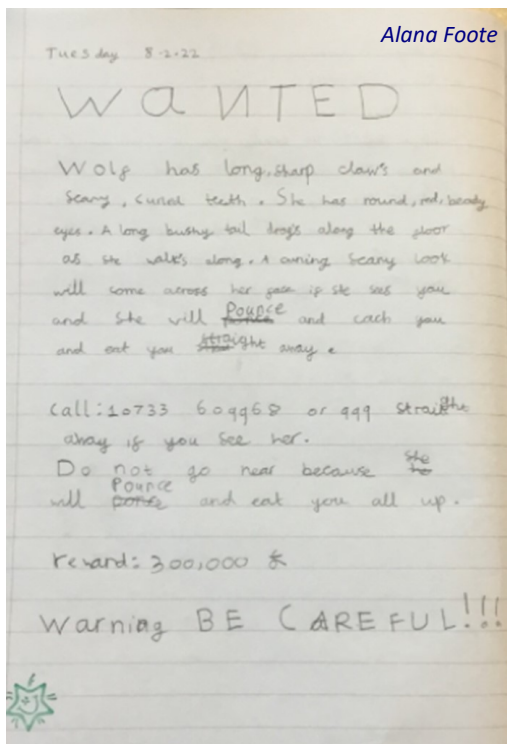 Alana Foote
Tuesday 8.2.22
WaNTED
Wolf has long, sharp claw's and
Scary, cured teeth. She has round, red, beady
eyes. A long bushy tail drag's along the floor
as she walk's along. A cuning Scary Look
will come across her face if she sees you
Pounce
and She will and cach you
and eat you straight away.
Call: 10733 609968 or 999 straight
away if you see her.
She
Do not go near because
Pounce
will and eat you all up.
reward: 300,000
Warning BE CAREFUL!!!